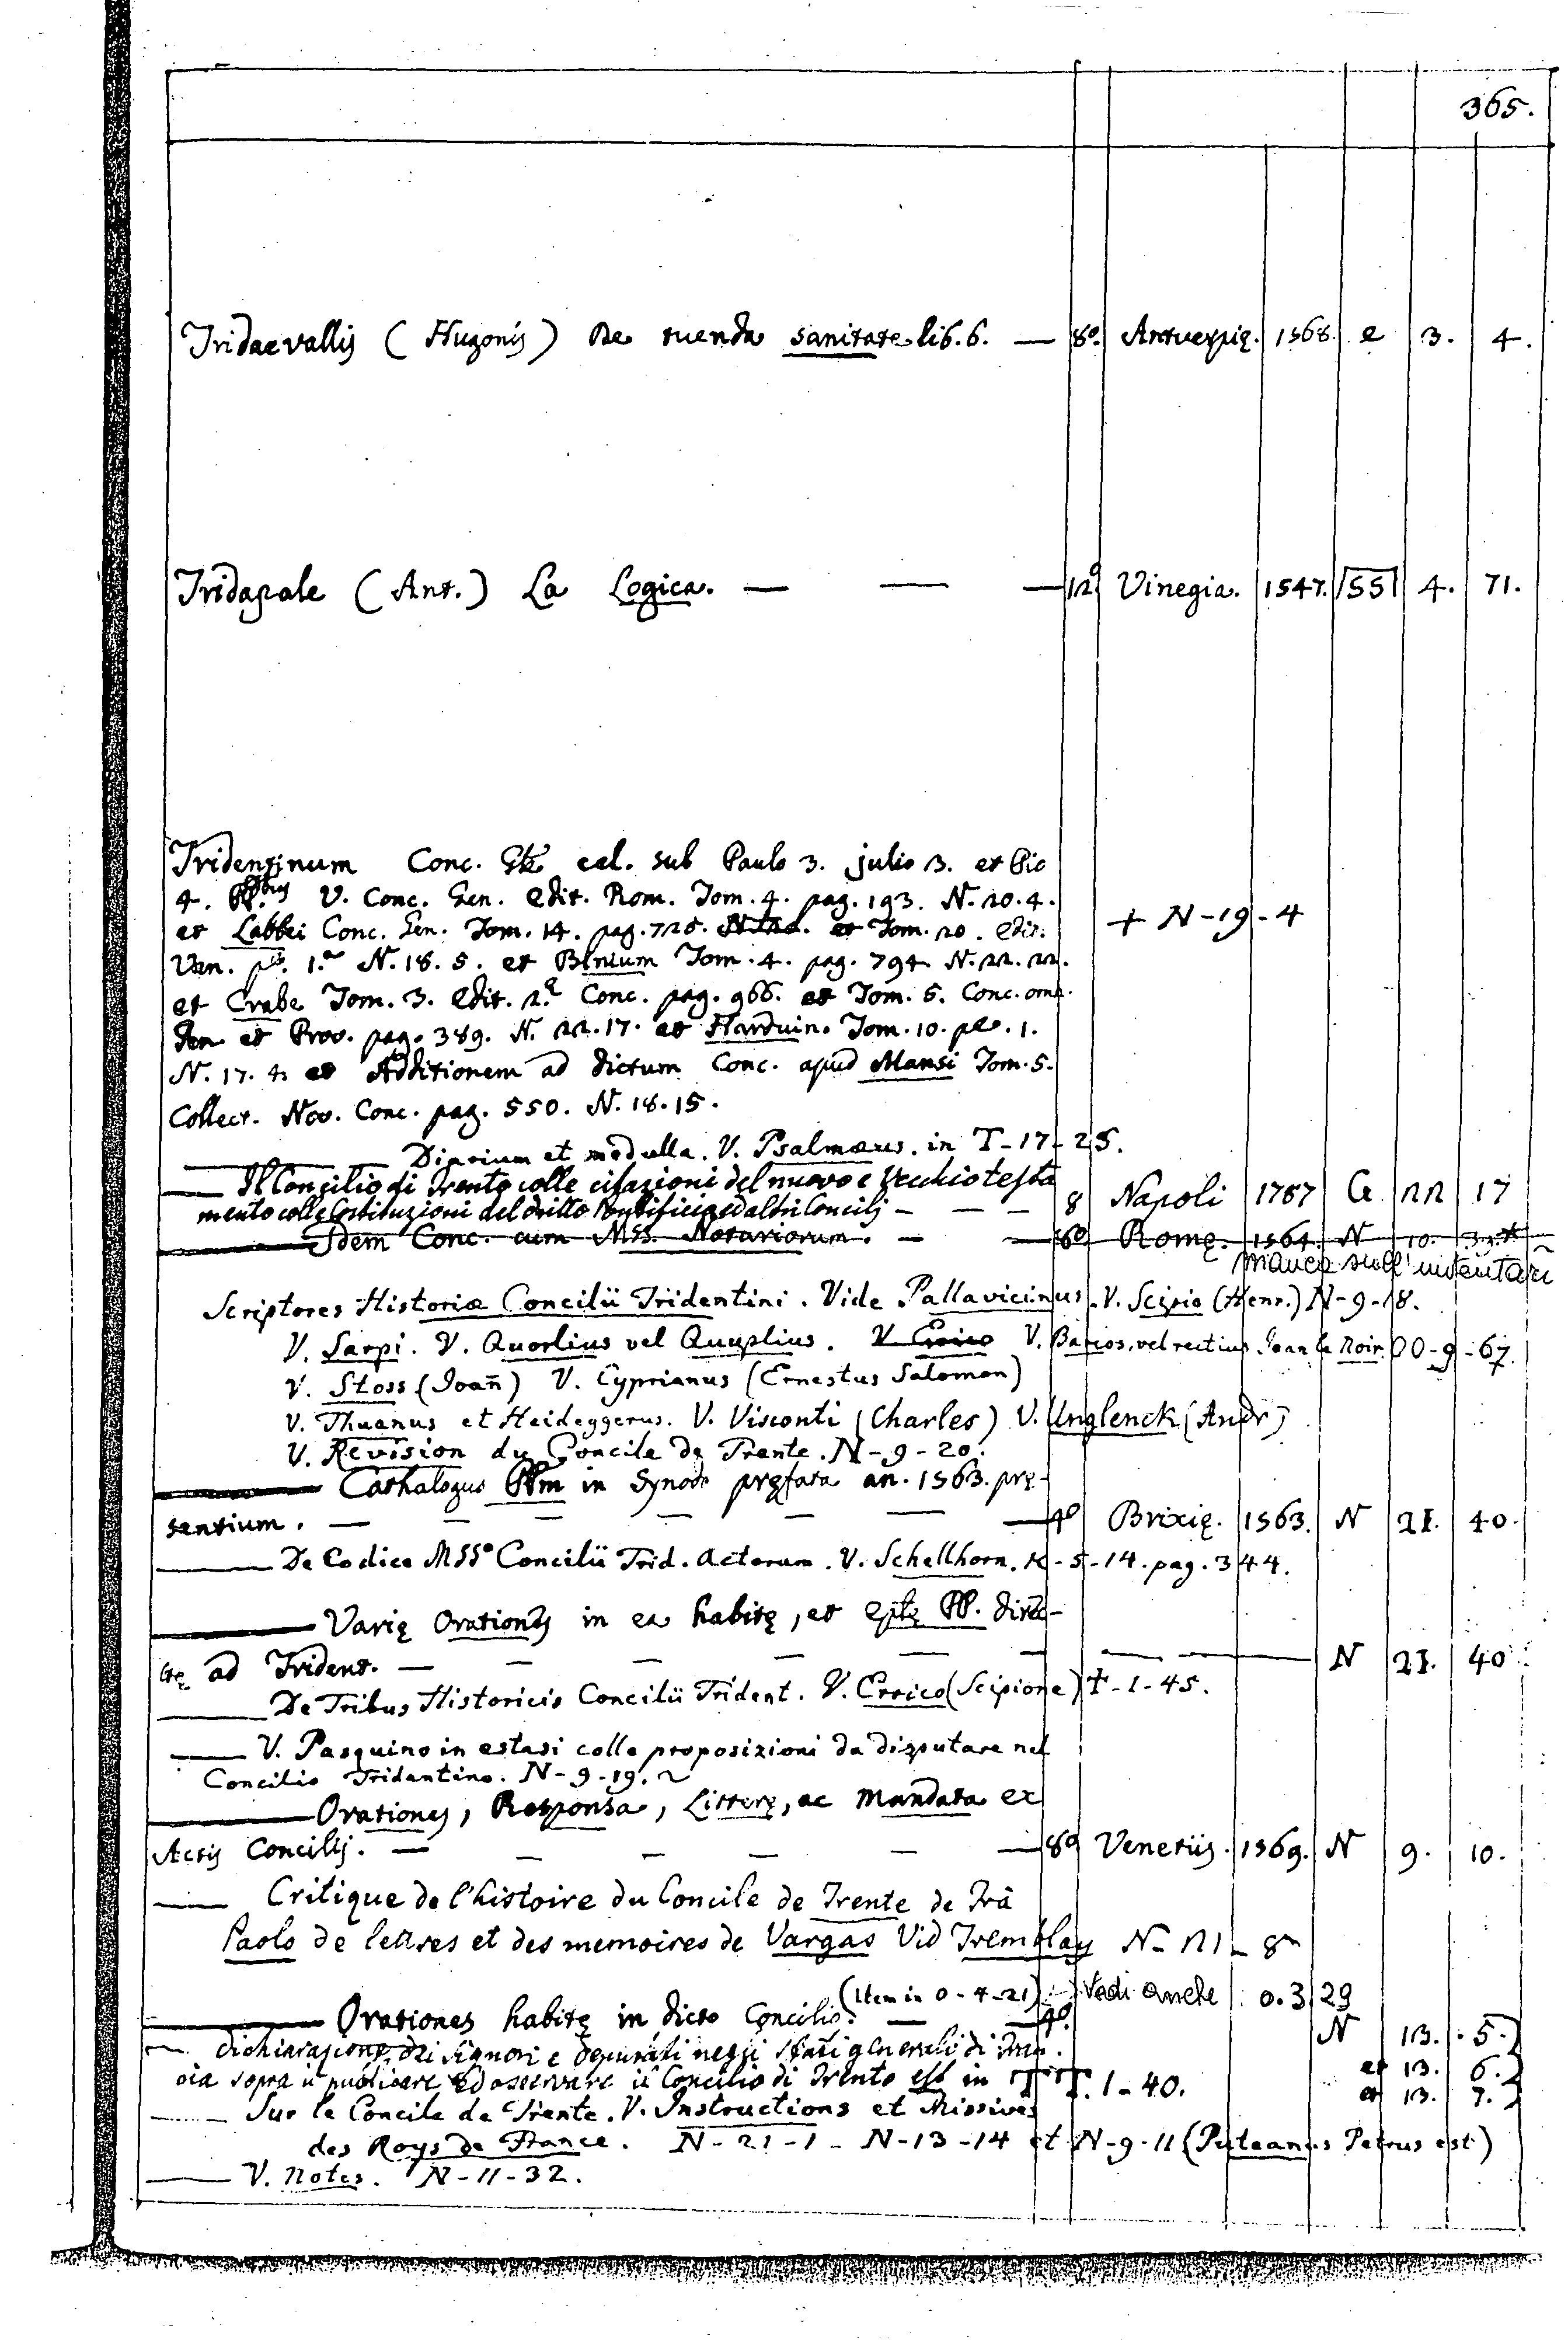 365.
Tridaevallis (Hugonis) De tuenda sanitate lib. 6. — 8º. Antuerpię. 1568. e 3. 4.
Tridapale (Ant.) La Logica. — — — 12º Vinegia. 1547. SS 4. 71.
Tridentinum Conc. cel. sub Paulo 3. julio 3. et Pio
4. V. Conc. Gen. Edit. Rom. Tom. 4. pag. 193. N. 20. 4.
et Labbei Conc. Gen. Tom. 14. pag. 725. et Tom. 20. Edit. + N-19-4
Ven. 1.a N. 18. 5. et Binium Tom. 4. pag. 794 N. 22. 22.
et Crabe Tom. 3. Edit. 2.a Conc. pag. 966. et Tom. 5. Conc. omn.
Gen et Prov. pag. 389. N. 22. 17. et Harduin. Tom. 10. 1.
N. 17. 4. et Additionem ad dictum Conc. apud Mansi Tom. 5.
Collect. Nov. Conc. pag. 550. N. 18. 15.
— Diarium et medulla. V. Psalmæus. in T-17-25.
— Il Concilio di Trento colle citazioni del nuovo e Vecchio testa
mento colle Costituzioni del dritto Pontificio ed altri Concilj — — — 8 Napoli 1787 G 22 17
— Idem Conc. cum MSS. Notariorum. — — 6º Romę. 1564. N 10.
manca sull'inventari
Scriptores Historiæ Concilii Tridentini. Vide Pallavicinus. V. Scipio (Henr.) N-9-18.
V. Sarpi. V. Quorlius vel Quuplius. V. Errico V. Barcos, vel rectius Jean le Noir. OO-9-67.
V. Stoss (Joañ) V. Cyprianus (Ernestus Salomon)
V. Thuanus et Heideggerus. V. Visconti (Charles) V. Unglenck (Andr)
V. Revision du Concile de Trente. N-9-20.
— Cathalogus PPm in Synodo pręfata an. 1563. prę-
sentium. — — — — — — 4º Brixię. 1563. N 21. 40.
— De Codice MSSº Concilii Trid. Actorum. V. Schellhorn. K-5-14. pag. 344.
— Varię Orationes in ea habitę, et Eplę PP. direc-
tę ad Trident. — — — — — — — — N 21. 40.
— De Tribus Historicis Concilii Trident. V. Errico (Scipione) t-1-45.
— V. Pasquino in estasi colle proposizioni da disputare nel
Concilio Tridentino. N-9-19.
— Orationes, Responsa, Litterę, ac Mandata ex
Actis Concilij. — — — — — — 8º Venetiis. 1569. N 9. 10.
— Critique de l'histoire du Concile de Trente de Frà
Paolo de lettres et des memoires de Vargas Vid Tremblay N-21-8
(Item in O-4-21) Vedi anche O. 3 29
— Orationes habitę in dicto Concilio. — — 4º. N 13. 5.
— dichiarazione dei Signori e deputati negli Stati generali di Fran. et 13. 6.
cia sopra il publicare ed osservare il Concilio di Trento est in TT. 1-40. et 13. 7.
— Sur le Concile de Trente. V. Instructions et Missives
des Roys de France. N-21-1 - N-13-14 et N-9-11 (Puteanus Petrus est)
— V. Notes. N-11-32.